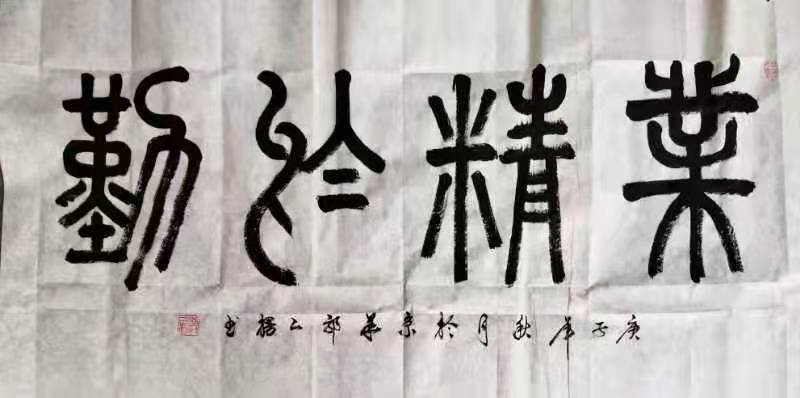 業精於勤
庚子年秋月於京華郭
書